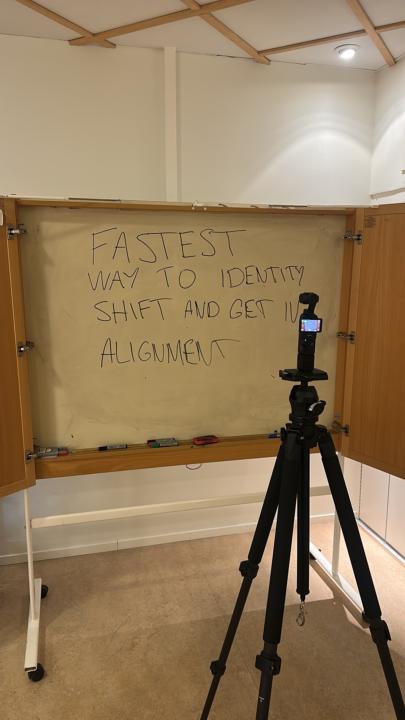 FASTEST
WAY TO IDENTITY
SHIFT AND GET IN
ALIGNMENT